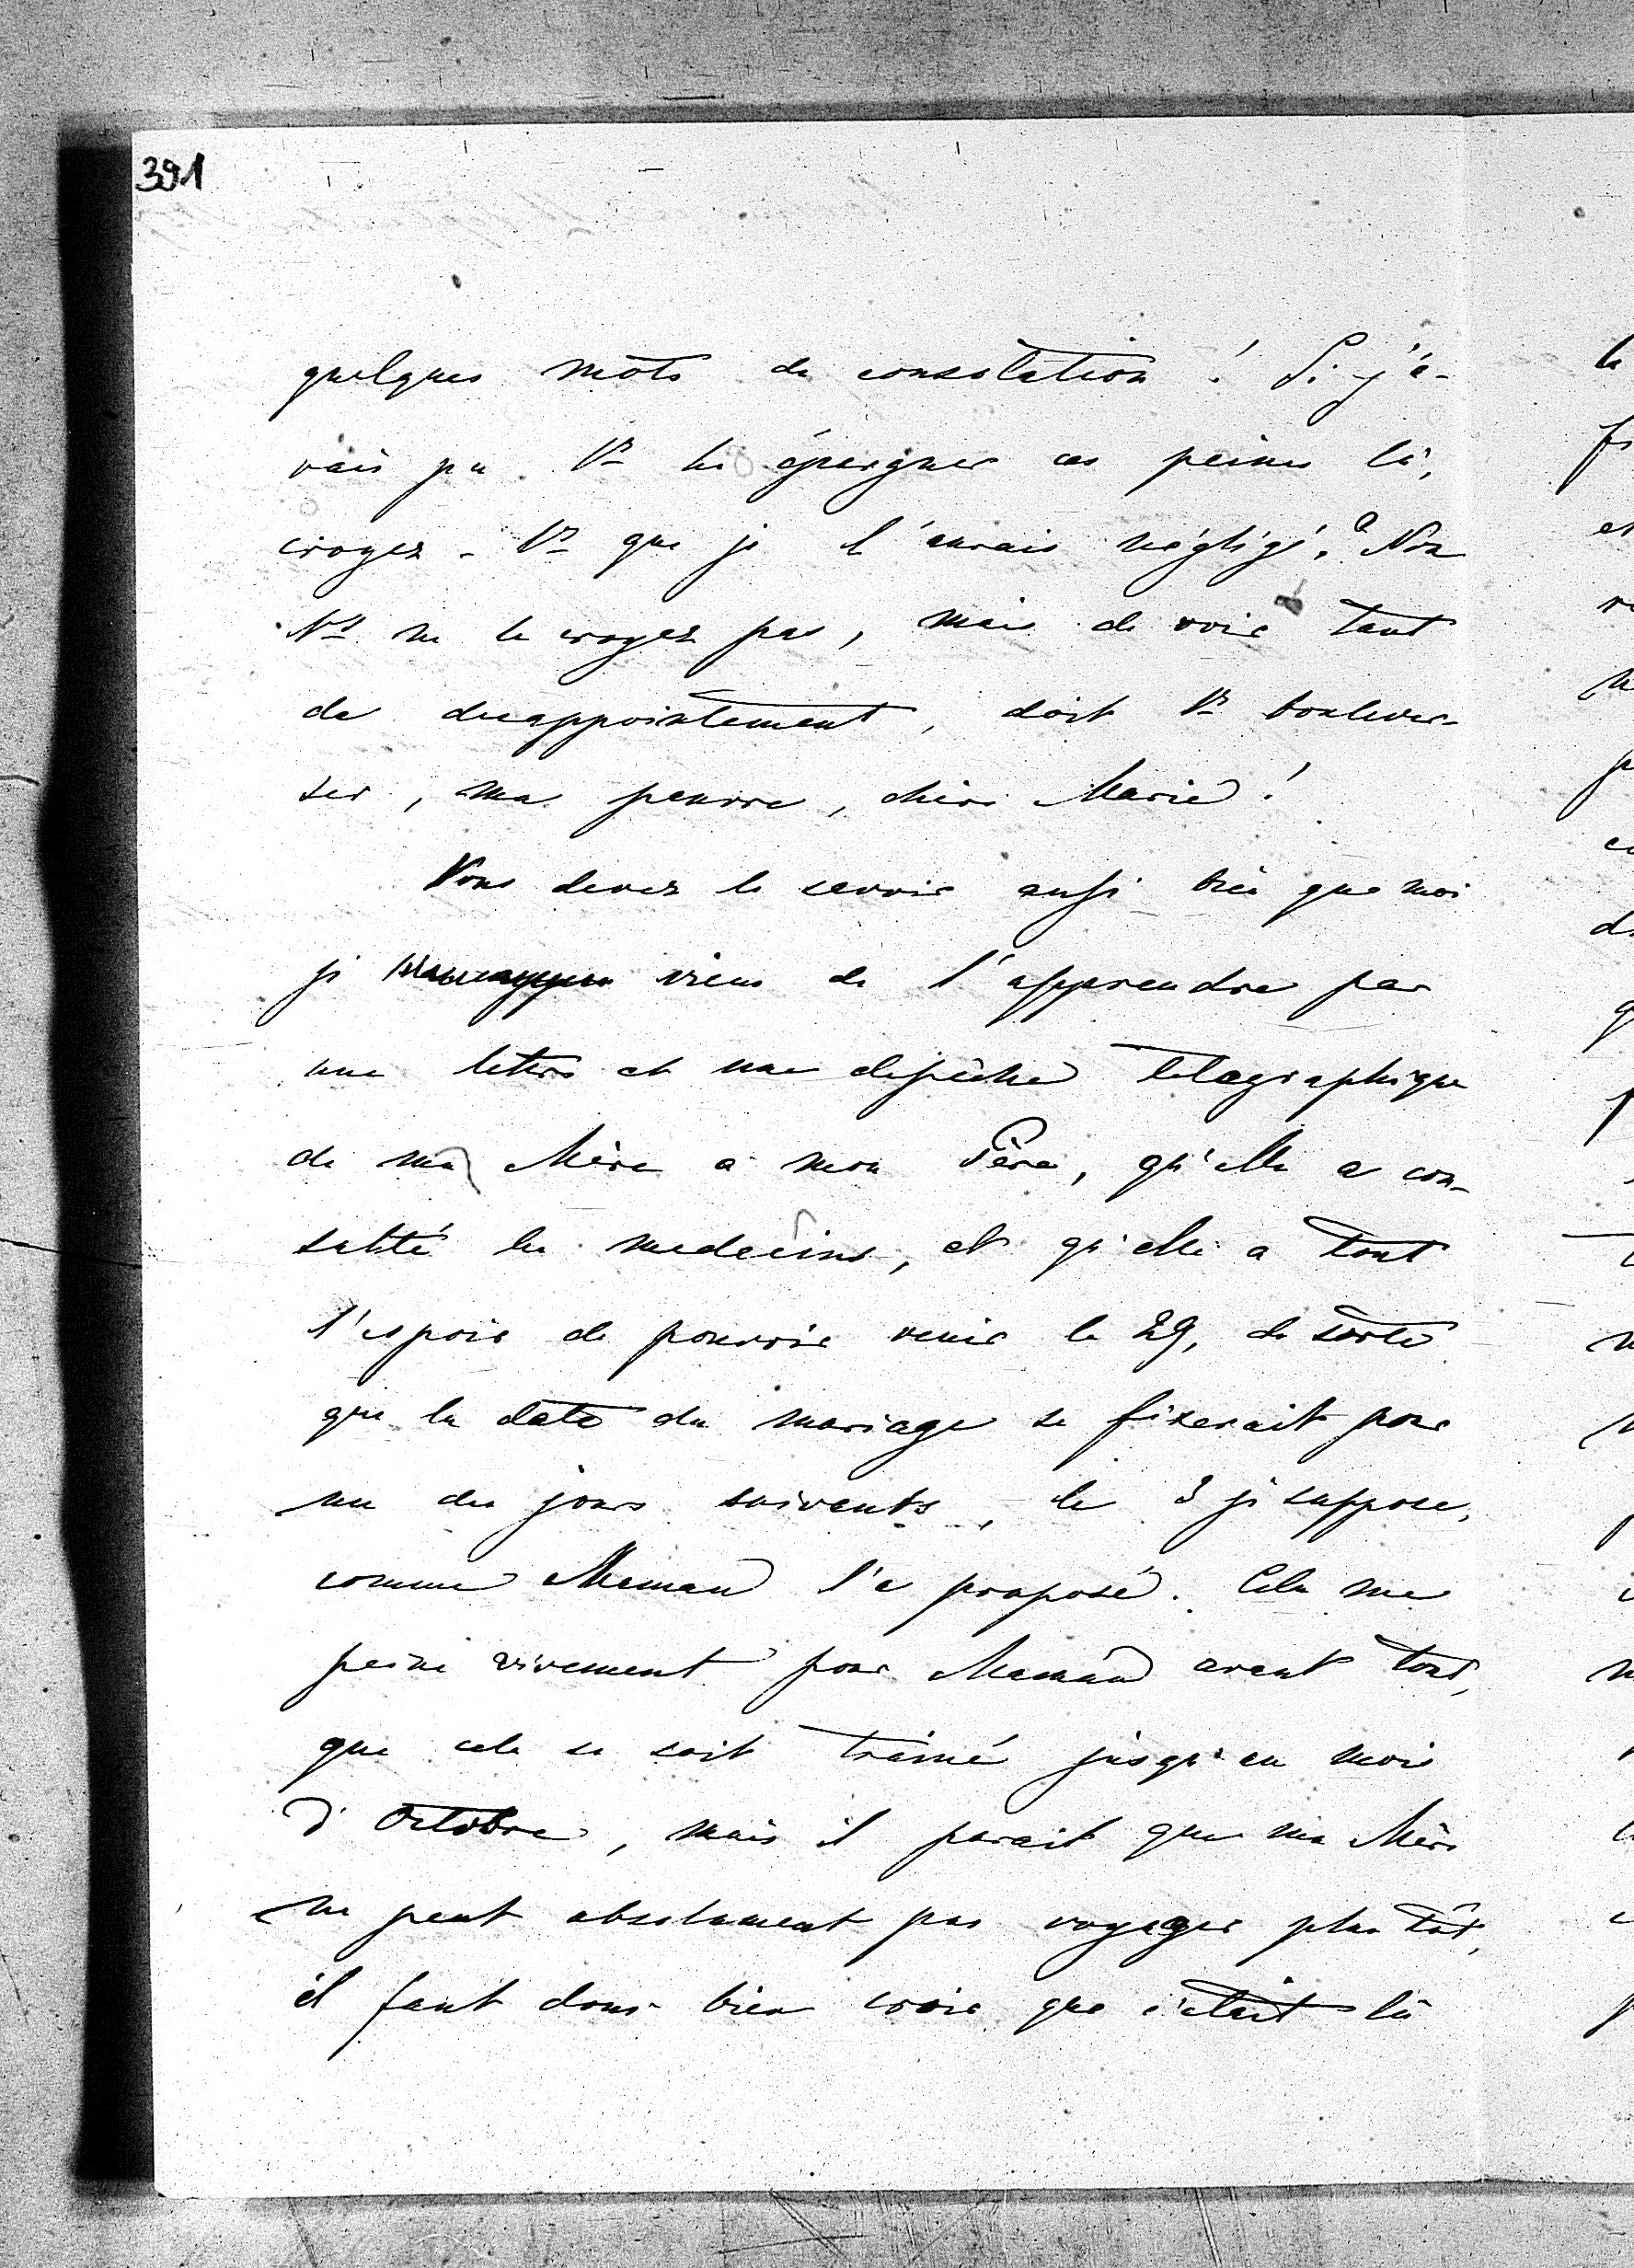 391
quelques mots de consolation ! Si j'a-
vais pu Vs les épargner ces peines là,
croyez-Vs que je l'aurais négligé ? Non
Vs ne le croyez pas, mais de voir tant
de desappointement, doit Vs boulever-
ser, ma pauvre, chère Marie !
Vous devez le savoir aussi bien que moi
je viens de l'apprendre par
une lettre et une depêche télégraphique
de ma Mère a mon Père, qu'elle a con-
sulté les medecins, et qu'elle a tout
l'espoir de pouvoir venir le 29, de sorte
que la date du mariage se fixerait pour
un des jours suivants, le 3 je suppose,
comme Maman l'a proposé. Cela me
peine vivement pour Maman avant tout,
que cela se soit trainé jusqu'au mois
d'Octobre, mais il parait que ma Mère
ne peut absolument pas voyager plus tôt,
il faut donc bien croire que c'etait là